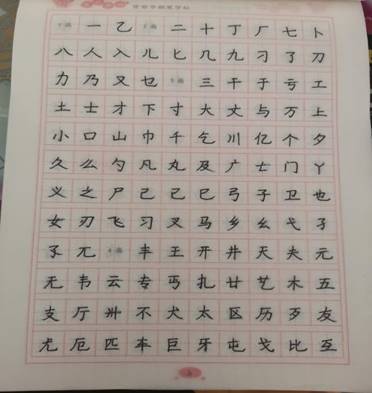 1画 一 乙 2画 二 十 丁 厂 七 卜
八 人 入 儿 匕 几 九 刁 了 刀
力 乃 又 乜 3画 三 干 于 亏 工
土 士 才 下 寸 大 丈 与 万 上
小 口 山 巾 千 乞 川 亿 个 夕
久 么 勺 凡 丸 及 广 亡 门 丫
义 之 尸 己 已 巳 弓 子 卫 也
女 刃 飞 习 叉 马 乡 幺 弋 孑
孓 兀 4画 丰 王 开 井 天 夫 元
无 韦 云 专 丐 扎 廿 艺 木 五
支 厅 卅 不 犬 太 区 历 歹 友
尤 厄 匹 车 巨 牙 屯 戈 比 互